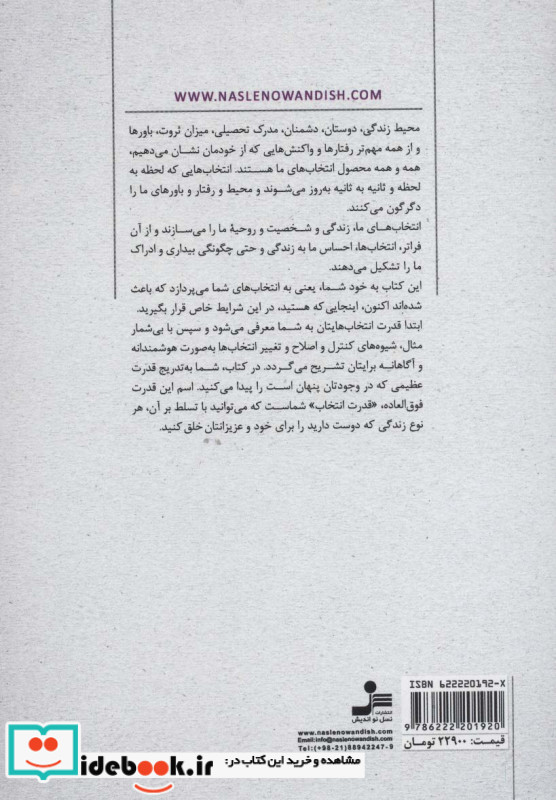 WWW.NASLENOWANDISH.COM
محیط زندگی، دوستان، دشمنان، مدرک تحصیلی، میزان ثروت، باورها
و از همه مهم‌تر رفتارها و واکنش‌هایی که از خودمان نشان می‌دهیم،
همه و همه محصول انتخاب‌های ما هستند. انتخاب‌هایی که لحظه به
لحظه و ثانیه به ثانیه به‌روز می‌شوند و محیط و رفتار و باورهای ما را
دگرگون می‌کنند.
انتخاب‌های ما، زندگی و شخصیت و روحیهٔ ما را می‌سازند و از آن
فراتر، انتخاب‌ها، احساس ما به زندگی و حتی چگونگی بیداری و ادراک
ما را تشکیل می‌دهند.
این کتاب به خود شما، یعنی به انتخاب‌های شما می‌پردازد که باعث
شده‌اند اکنون، اینجایی که هستید، در این شرایط خاص قرار بگیرید.
ابتدا قدرت انتخاب‌هایتان به شما معرفی می‌شود و سپس با بی‌شمار
مثال، شیوه‌های کنترل و اصلاح و تغییر انتخاب‌ها به‌صورت هوشمندانه
و آگاهانه برایتان تشریح می‌گردد. در کتاب، شما به‌تدریج قدرت
عظیمی که در وجودتان پنهان است را پیدا می‌کنید. اسم این قدرت
فوق‌العاده، «قدرت انتخاب» شماست که می‌توانید با تسلط بر آن، هر
نوع زندگی که دوست دارید را برای خود و عزیزانتان خلق کنید.
ISBN 622220192-X
9 786222 201920
قیمت: ۲۲۹۰۰ تومان
انتشارات
نسل نو اندیش
www.naslenowandish.com
Email:info@naslenowandish.com
Tel:(+98-21)88942247-9
مشاهده و خرید این کتاب در:
idebook.ir